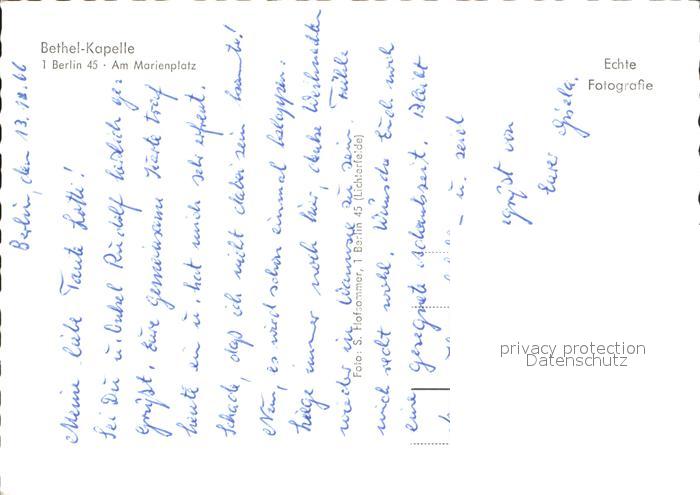 Bethel-Kapelle
1 Berlin 45 · Am Marienplatz
Echte
Fotografie
Foto: S. Hofsommer, 1 Berlin 45 (Lichterfelde)
Berlin, den 13.12.66
Meine liebe Tante Lotte!
Sei Du u. Onkel Rudolf herzlich ge-
grüßt. Eure gemeinsame Karte traf
heute ein u. hat mich sehr erfreut.
Schade, daß ich nicht dabei sein konnte!
Nun, es wird schon einmal klappen.
liege immer noch hier, Weihnachten
wieder in Wannsee zu sein. Fühle
mich recht wohl. Wünsche Euch noch
eine gesegnete Adventszeit. Bleibt
u. seid
gegrüßt von
Eurer Gisela.
privacy protection
Datenschutz